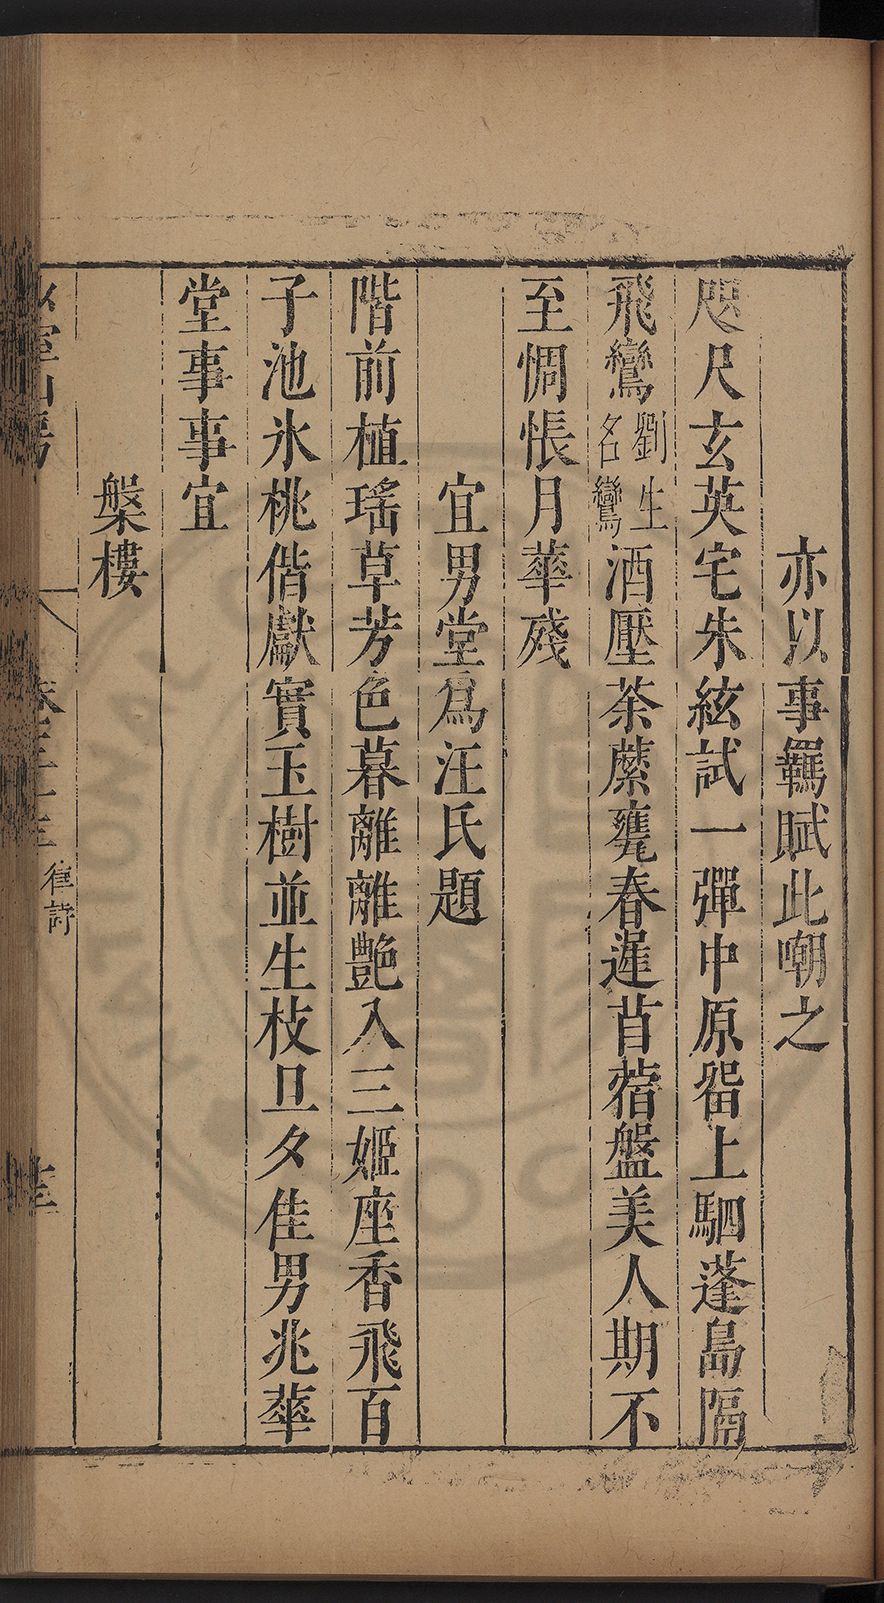 亦以事羈賦此嘲之
咫尺玄英宅朱絃試一彈中原畱上駟蓬島隔
飛鸞劉生名鸞酒壓荼蘪甕春遲苜蓿盤美人期不
至惆悵月華殘
宜男堂爲汪氏題
階前植瑤草芳色暮離離艷入三姬座香飛百
子池氷桃偕獻實玉樹並生枝旦夕佳男兆華
堂事事宜
槃樓
律詩